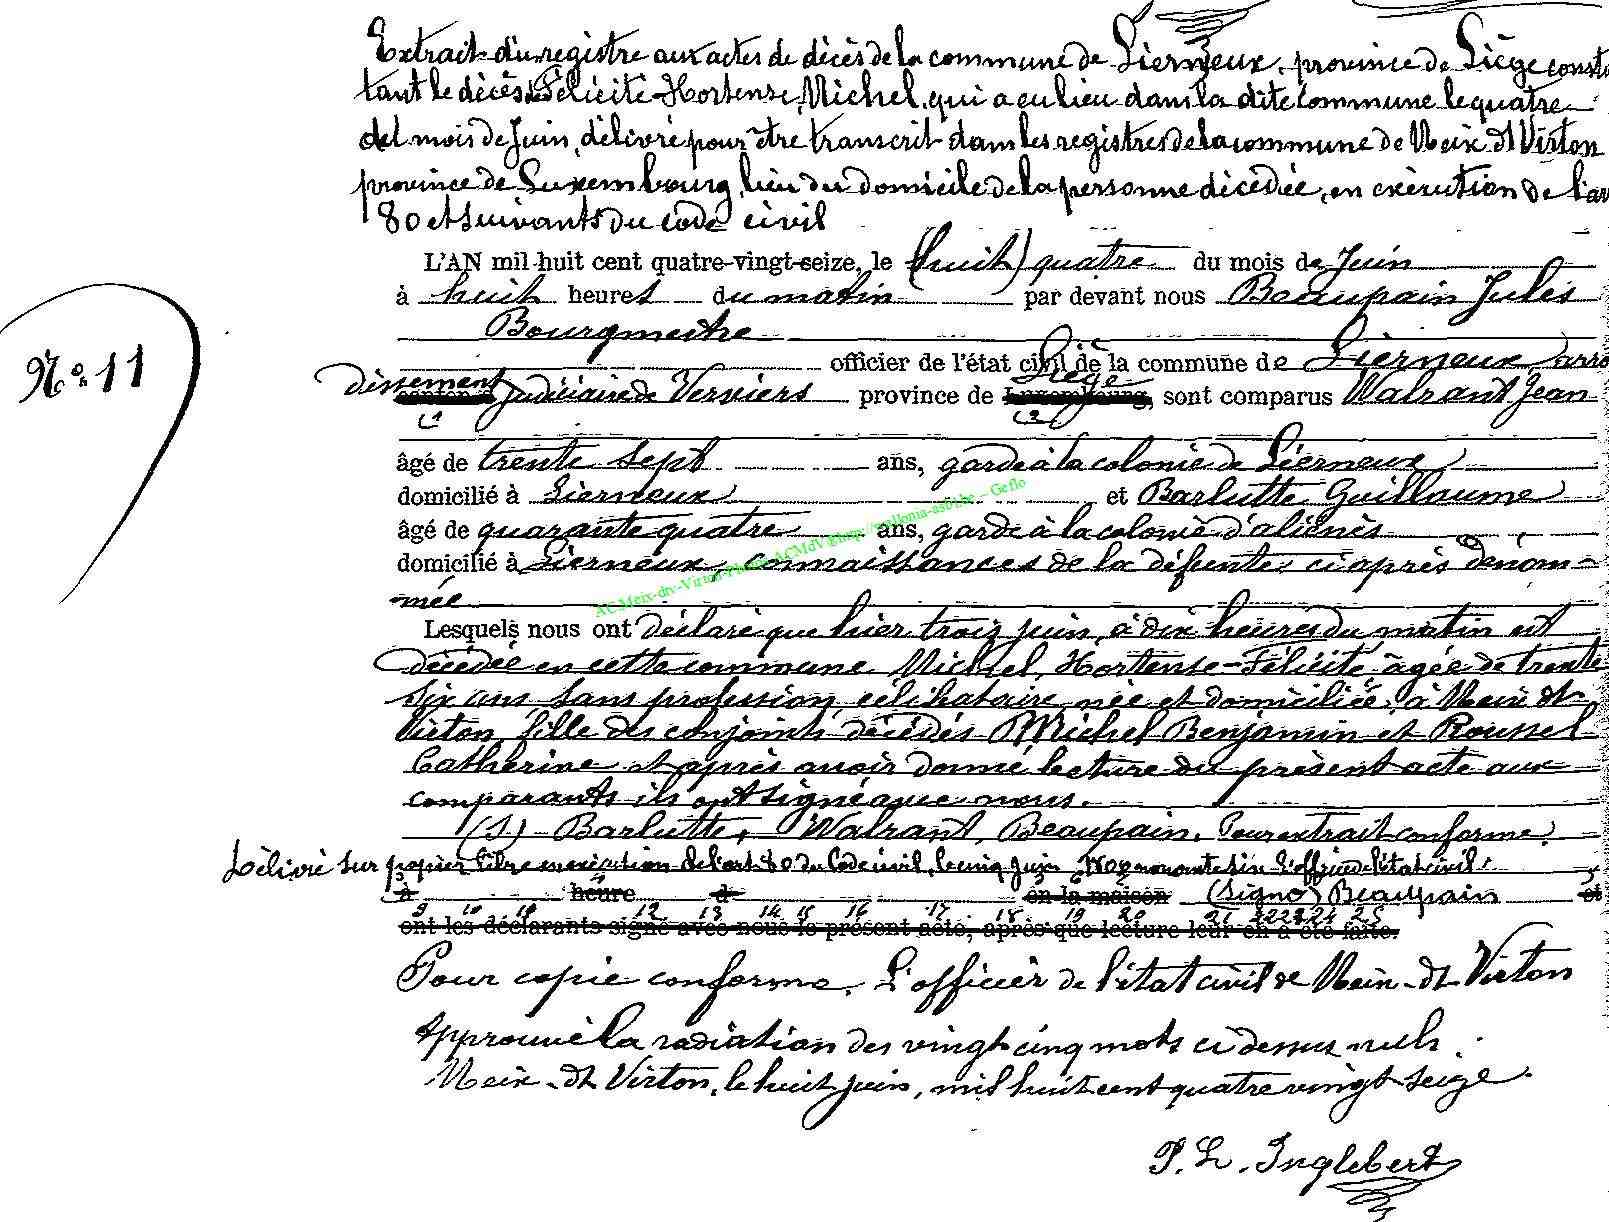 Extrait du registre aux actes de décès de la commune de Lierneux, province de Liège consta
tant le décès de Félicité-Hortense Michel, qui a eu lieu dans la dite commune le quatre
del mois de Juin, délivré pour être transcrit dans les registres de la commune de Meix-dt Virton
province de Luxembourg, lieu du domicile de la personne décédée, en exécution de l'ar
80 et suivants du code civil
L'AN mil huit cent quatre-vingt-seize, le (huit) quatre du mois de Juin
à huit heures du matin par devant nous Beaupain Jules
Bourgmestre
N.o 11
officier de l'état civil de la commune de Lierneux, arro
Liège
dissement judiciaire de Verviers province de Luxembourg, sont comparus Walrant Jean
(1 (2
âgé de trente sept ans, garde à la colonie de Lierneux
domicilié à Lierneux et Barlutte Guillaume
âgé de quarante quatre ans, garde à la colonie d'aliénés
domicilié à Lierneux, connaissances de la défunte ci après dénom-
mée
Lesquels nous ont déclaré que hier trois juin, à dix heures du matin est
décédée en cette commune Michel, Hortense-Félicité, âgée de trente
six ans, sans profession, célibataire, née et domiciliée à Meix-dt-
Virton, fille des conjoints décédés Michel Benjamin et Roussel
Catherine et après avoir donné lecture du présent acte aux
comparants ils ont signé avec nous.
(S) Barlutte, Walrant, Beaupain. Pour extrait conforme.
Délivré sur papier libre en exécution de l'art 80 du Code civil, le cinq Juin 1800 nonante six L'officier de l'état civil:
à heure d en la maison (Signé) Beaupain et
9 10 11 12 13 14 15 16 17 18 19 20 21 22 23 24 25
ont les déclarants signé avec nous le présent acte, après que lecture leur en a été faite.
Pour copie conforme. L'officier de l'état civil de Meix-dt Virton
Approuvé la radiation des vingt-cinq mots ci dessus nuls.
Meix-dt Virton, le huit juin, mil huit cent quatre vingt seize.
P. L. Inglebert